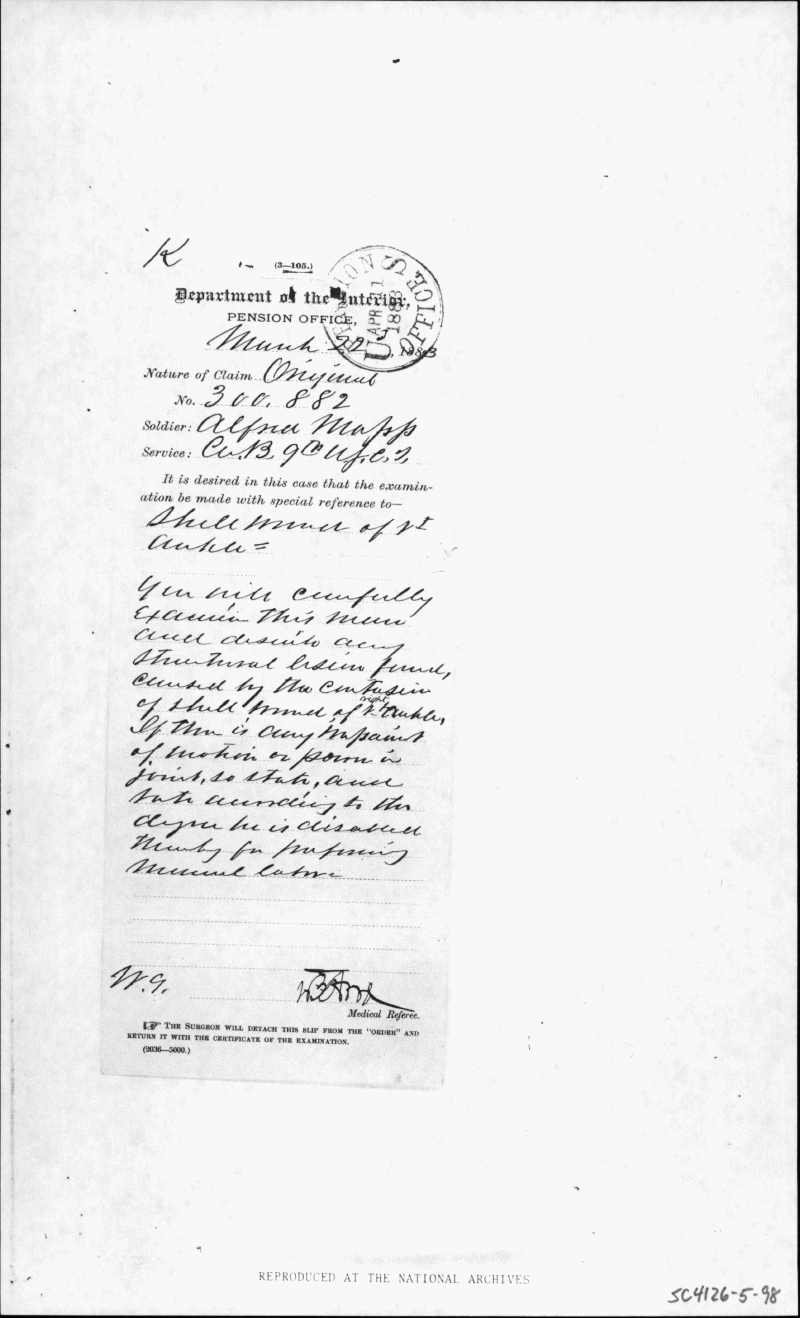 K
(3—105.)
Department of the Interior,
PENSION OFFICE,
March 22, 1883
Nature of Claim Original
No. 300.882
Soldier: Alfred Mapp
Service: Co. B. 9th U.S.C.T.
It is desired in this case that the examin-
ation be made with special reference to—
Shell wound of rt
ankle =
You will carefully
examine this man
and describe any
structural lesion found,
caused by the contusion
of shell wound of rt right ankle,
If there is any impairt
of motion or power in
joint, so state, and
rate according to the
degree he is disabled
thereby for performing
manual labor.
PENSION OFFICE
U S
APR 11
1883
W.G.
Medical Referee.
☞ THE SURGEON WILL DETACH THIS SLIP FROM THE "ORDER" AND
RETURN IT WITH THE CERTIFICATE OF THE EXAMINATION.
(2036—5000.)
REPRODUCED AT THE NATIONAL ARCHIVES
SC4126-5-98